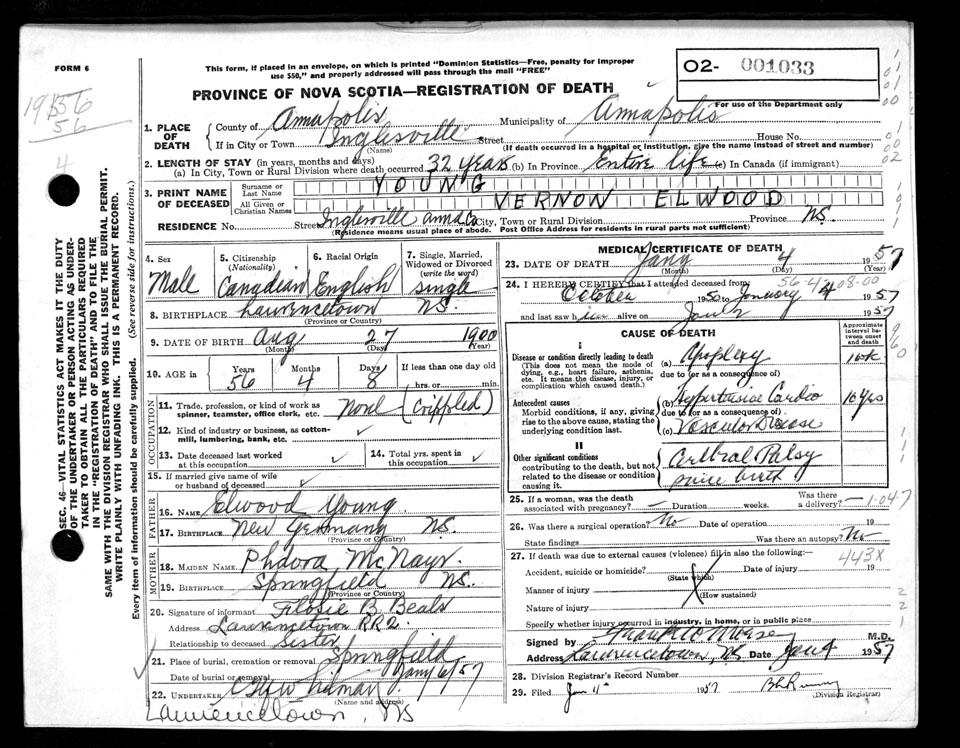 FORM 6
This form, if placed in an envelope, on which is printed "Dominion Statistics—Free, penalty for improper
use $50," and properly addressed will pass through the mail "FREE"
O2- 001033
For use of the Department only
PROVINCE OF NOVA SCOTIA—REGISTRATION OF DEATH
1956
56
4
1. PLACE OF DEATH
County of Annapolis Municipality of Annapolis
If in City or Town Inglesville Street House No.
(Name) (If death occurred in a hospital or institution, give the name instead of street and number)
2. LENGTH OF STAY (in years, months and days)
(a) In City, Town or Rural Division where death occurred 32 years (b) In Province Entire life (c) In Canada (if immigrant)
3. PRINT NAME OF DECEASED
Surname or Last Name YOUNG
All Given or Christian Names VERNON ELWOOD
RESIDENCE No. Street Inglesville Anna Co City, Town or Rural Division Province N.S.
(Residence means usual place of abode. Post Office Address for residents in rural parts not sufficient)
4. Sex
Male
5. Citizenship (Nationality)
Canadian
6. Racial Origin
English
7. Single, Married, Widowed or Divorced (write the word)
single
8. BIRTHPLACE Lawrencetown N.S.
(Province or Country)
9. DATE OF BIRTH Aug 27 1900
(Month) (Day) (Year)
10. AGE in Years Months Days If less than one day
56 4 8 hrs. or min.
OCCUPATION
11. Trade, profession, or kind of work as spinner, teamster, office clerk, etc. None (Crippled)
12. Kind of industry or business, as cotton-mill, lumbering, bank, etc.
13. Date deceased last worked at this occupation
14. Total yrs. spent in this occupation
15. If married give name of wife or husband of deceased
FATHER
16. NAME Elwood Young
17. BIRTHPLACE New Germany N.S.
(Province or Country)
MOTHER
18. MAIDEN NAME McNayr
19. BIRTHPLACE Springfield N.S.
(Province or Country)
20. Signature of informant Flossie B. Beals
Address Lawrencetown RR2
Relationship to deceased Sister
21. Place of burial, cremation or removal Springfield
Date of burial or removal Jany 6/57
22. UNDERTAKER
(Name and address)
Lawrencetown, NS
MEDICAL CERTIFICATE OF DEATH
23. DATE OF DEATH Jany 4 1957
(Month) (Day) (Year)
24. I HEREBY CERTIFY that I attended deceased from
October 1950 to January 4 1957
and last saw him alive on Jan 2 1957
CAUSE OF DEATH
Approximate interval between onset and death
I
Disease or condition directly leading to death
(This does not mean the mode of dying, e.g., heart failure, asthenia, etc. It means the disease, injury, or complication which caused death.)
(a) Apoplexy 1 wk
due to (or as a consequence of)
Antecedent causes
Morbid conditions, if any, giving rise to the above cause, stating the underlying condition last.
(b) Hypertensive Cardio 10 yrs
due to (or as a consequence of)
(c) Vascular Disease
II
Other significant conditions contributing to the death, but not related to the disease or condition causing it.
Cerebral Palsy
since birth
25. If a woman, was the death associated with pregnancy? Duration weeks. Was there a delivery?
26. Was there a surgical operation? No Date of operation 19
State findings Was there an autopsy? No
27. If death was due to external causes (violence) fill in also the following:
443X
Accident, suicide or homicide? Date of injury 19
(State which)
Manner of injury
(How sustained)
Nature of injury
Specify whether injury occurred in industry, in home, or in public place
Signed by Morse M.D.
Address Lawrencetown, NS Date Jan 4 1957
28. Division Registrar's Record Number
29. Filed Jan 1957
(Division Registrar)
SEC. 46—VITAL STATISTICS ACT MAKES IT THE DUTY
OF THE UNDERTAKER OR PERSON ACTING AS UNDER-
TAKER TO OBTAIN ALL THE PARTICULARS REQUIRED
IN THE "REGISTRATION OF DEATH" AND TO FILE THE
SAME WITH THE DIVISION REGISTRAR WHO SHALL ISSUE THE BURIAL PERMIT.
WRITE PLAINLY WITH UNFADING INK. THIS IS A PERMANENT RECORD.
Every item of information should be carefully supplied. (See reverse side for instructions.)